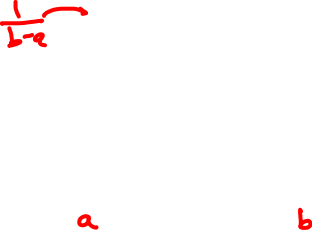 1
b-a
a b